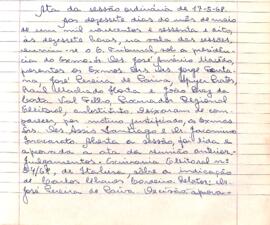 Ata da sessão ordinária de 17-5-68.
Aos dezessete dias do mês de maio
de um mil novecentos e sessenta e oito,
às dezessete horas, na sala das sessões,
reuniu-se o E. Tribunal, sob a presidência
do Exmo. Sr. Des.
presentes os Exmos. Srs. Drs. Jorge
José Pereira de Paiva,
e João Braz da
Costa Val Filho, Procurador Regional
Eleitoral, substituto. Deixaram de com-
parecer, por motivo justificado, os Exmos.
Srs. Des. Assis Santiago e Dr. Jacomino
Inacarato. Aberta a sessão, foi lida e
aprovada a ata da reunião anterior.
Julgamentos: Eleitoral nº
/68, de sobre a indicação
de Carlos Relator: Dr.
José Pereira de Paiva. Decisão: aprova-